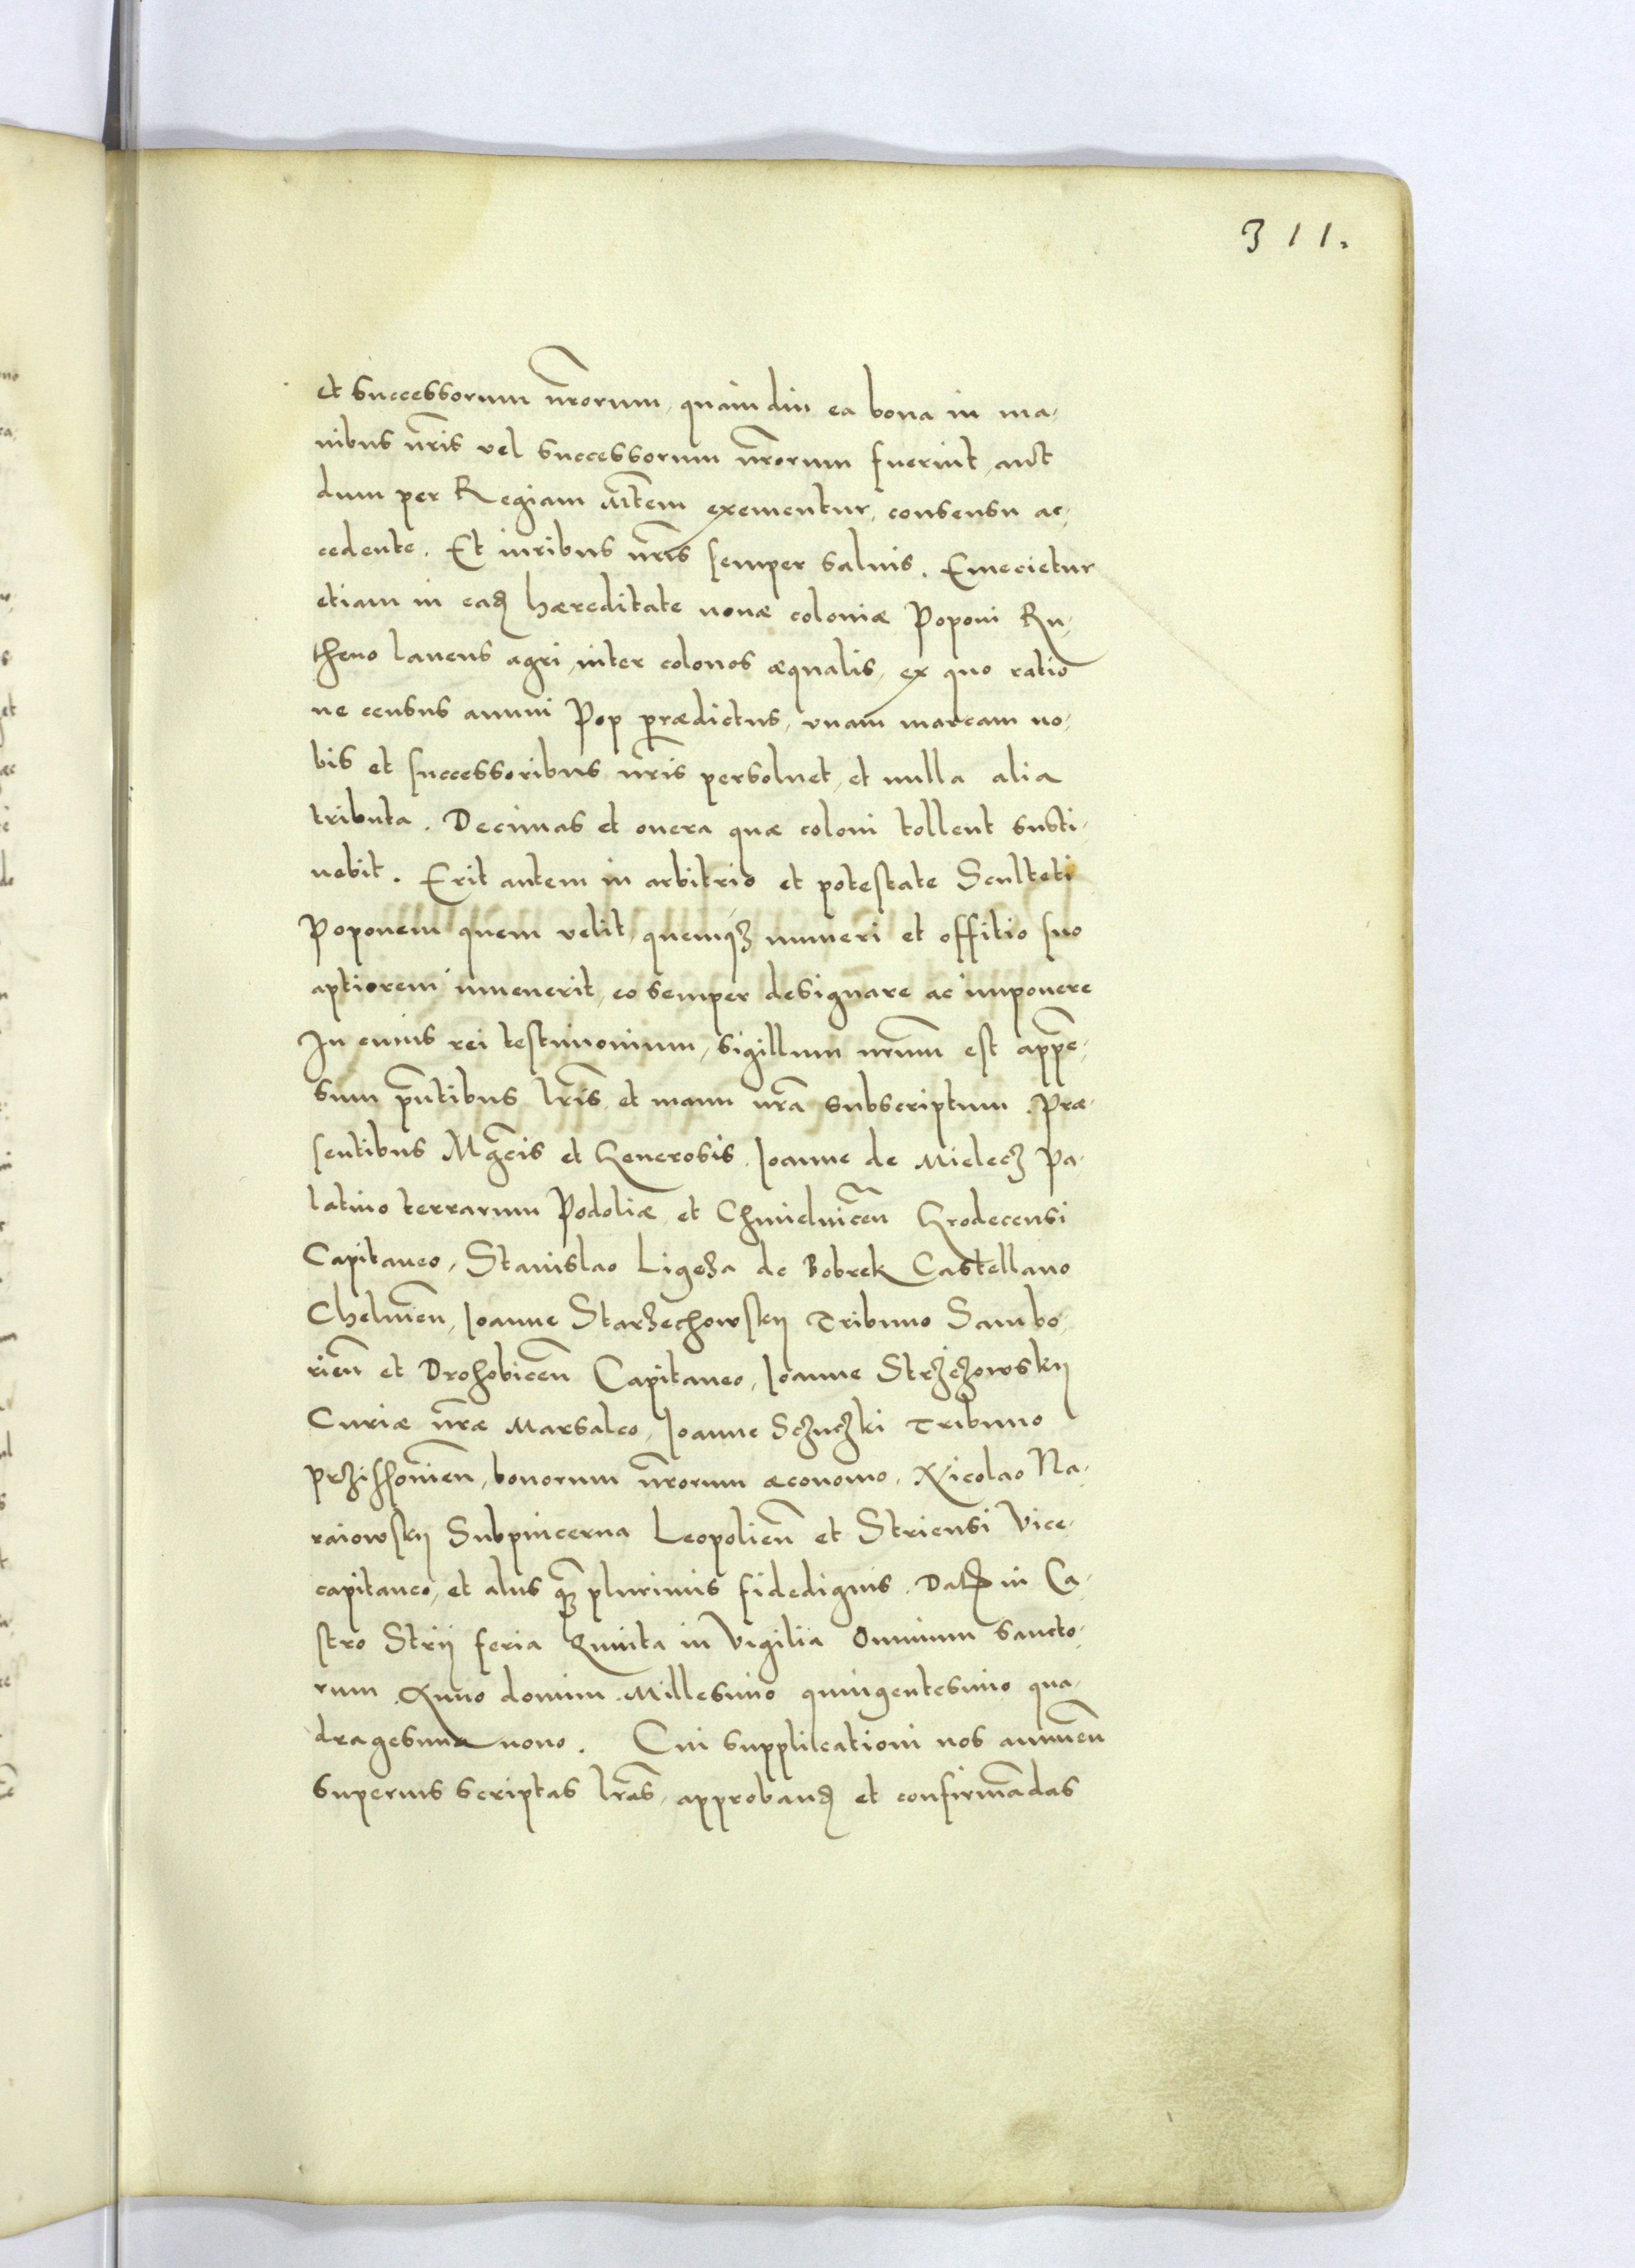 311.
et successorum nr̃orum, quamdiu ea bona in ma-
nibus nr̃is vel successorum nr̃orum fuerint, aut
dum per Regiam Mtẽm exementur, consensu ac-
cedente. Et iuribus nr̃is semper saluis. Emecietur
etiam in eadꝫ hæreditate nouæ coloniæ Poponi Ru-
theno laneus agri, inter colonos æqualis, ex quo ratio
ne census annui Pop prædictus, vnam marcam no-
bis et successoribus nr̃is persoluet, et nulla alia
tributa. Decimas et onera quæ coloni tollent susti-
nebit. Erit autem in arbitrio et potestate Sculteti
Poponem quem velit, quemqꝫ muneri et offitio suo
aptiorem inuenerit, eo semper designare ac imponere
In cuius rei testimonium, sigillum nr̃um est appẽ-
sum pñtibus lr̃is, et manu nr̃a subscriptum. Præ-
sentibus Mgcĩs et Generosis. Joanne de Mielecz Pa-
latino terrarum Podoliæ, et Chmielnicẽn Grodecensi
Capitaneo, Stanislao Ligeza de Bobrek Castellano
Chelmẽn, Joanne Starzechowsky Tribuno Sambo-
riẽn et Drohobicẽn Capitaneo, Joanne Strzezowsky
Curiæ nr̃æ Marsalco, Joanne Sczuczki Tribuno
bonorum nr̃orum æconomo, Nicolao Na-
raiowsky Subpincerna Leopoliẽn et Striensi Vice-
capitaneo, et alijs qꝫ plurimis fidedignis. Datꝫ in Ca-
stro Strij feria Quinta in Vigilia Omnium Sancto-
rum. Anno domini Millesimo quingentesimo qua-
dragesimo nono. Cui supplicationi nos annuẽn
superius scriptas lr̃as, approbandꝫ et confirmãdas